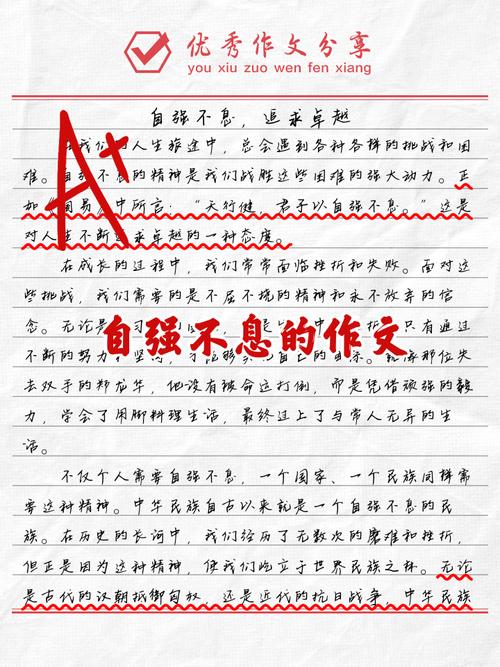 优秀作文分享
you xiu zuo wen fen xiang
A+
自强不息，追求卓越
我们 人生旅途中，总会遇到各种各样的挑战和困
难。自强不息的精神是我们战胜这些困难的强大动力。正
如《周易》中所言：“天行健，君子以自强不息。”这是
对人生不断追求卓越的一种态度。
在成长的过程中，我们常常面临挫折和失败。面对这
些挑战，我们需要的是不屈不挠的精神和永不放弃的信
念。无论是 只有通过
自强不息的作文
不断的努力 那位失
去双手的郑龙华，他没有被命运打倒，而是凭借顽强的毅
力，学会了用脚料理生活，最终过上了与常人无异的生
活。
不仅个人需要自强不息，一个国家、一个民族同样需
要这种精神。中华民族自古以来就是一个自强不息的民
族。在历史的长河中，我们经历了无数次的磨难和挫折，
但正是因为这种精神，使我们屹立于世界民族之林。无论
是古代的汉朝抵御匈奴，还是近代的抗日战争，中华民族